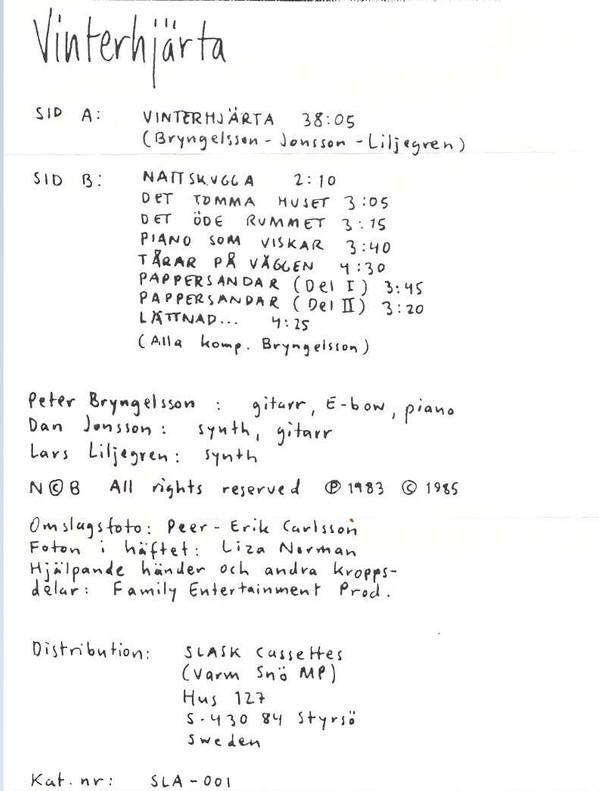 Vinterhjärta
SID A: VINTERHJÄRTA 38:05
(Bryngelsson - Jonsson - Liljegren)
SID B: NATTSKUGGA 2:10
DET TOMMA HUSET 3:05
DET ÖDE RUMMET 3:15
PIANO SOM VISKAR 3:40
TÅRAR PÅ VÄGGEN 4:30
PAPPERSANDAR (Del I) 3:45
PAPPERSANDAR (Del II) 3:20
LÄTTNAD... 4:25
(Alla komp. Bryngelsson)
Peter Bryngelsson : gitarr, E-bow, piano
Dan Jonsson : synth, gitarr
Lars Liljegren: synth
N©B All rights reserved ℗ 1983 © 1985
Omslagsfoto: Peer-Erik Carlsson
Foton i häftet: Liza Norman
Hjälpande händer och andra kropps-
delar: Family Entertainment Prod.
Distribution: SLASK Cassettes
(Varm Snö MP)
Hus 127
S-430 84 Styrsö
Sweden
Kat.nr: SLA-001